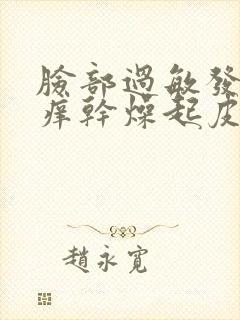 臉部過敏發
癢幹燥起皮
趙永寬